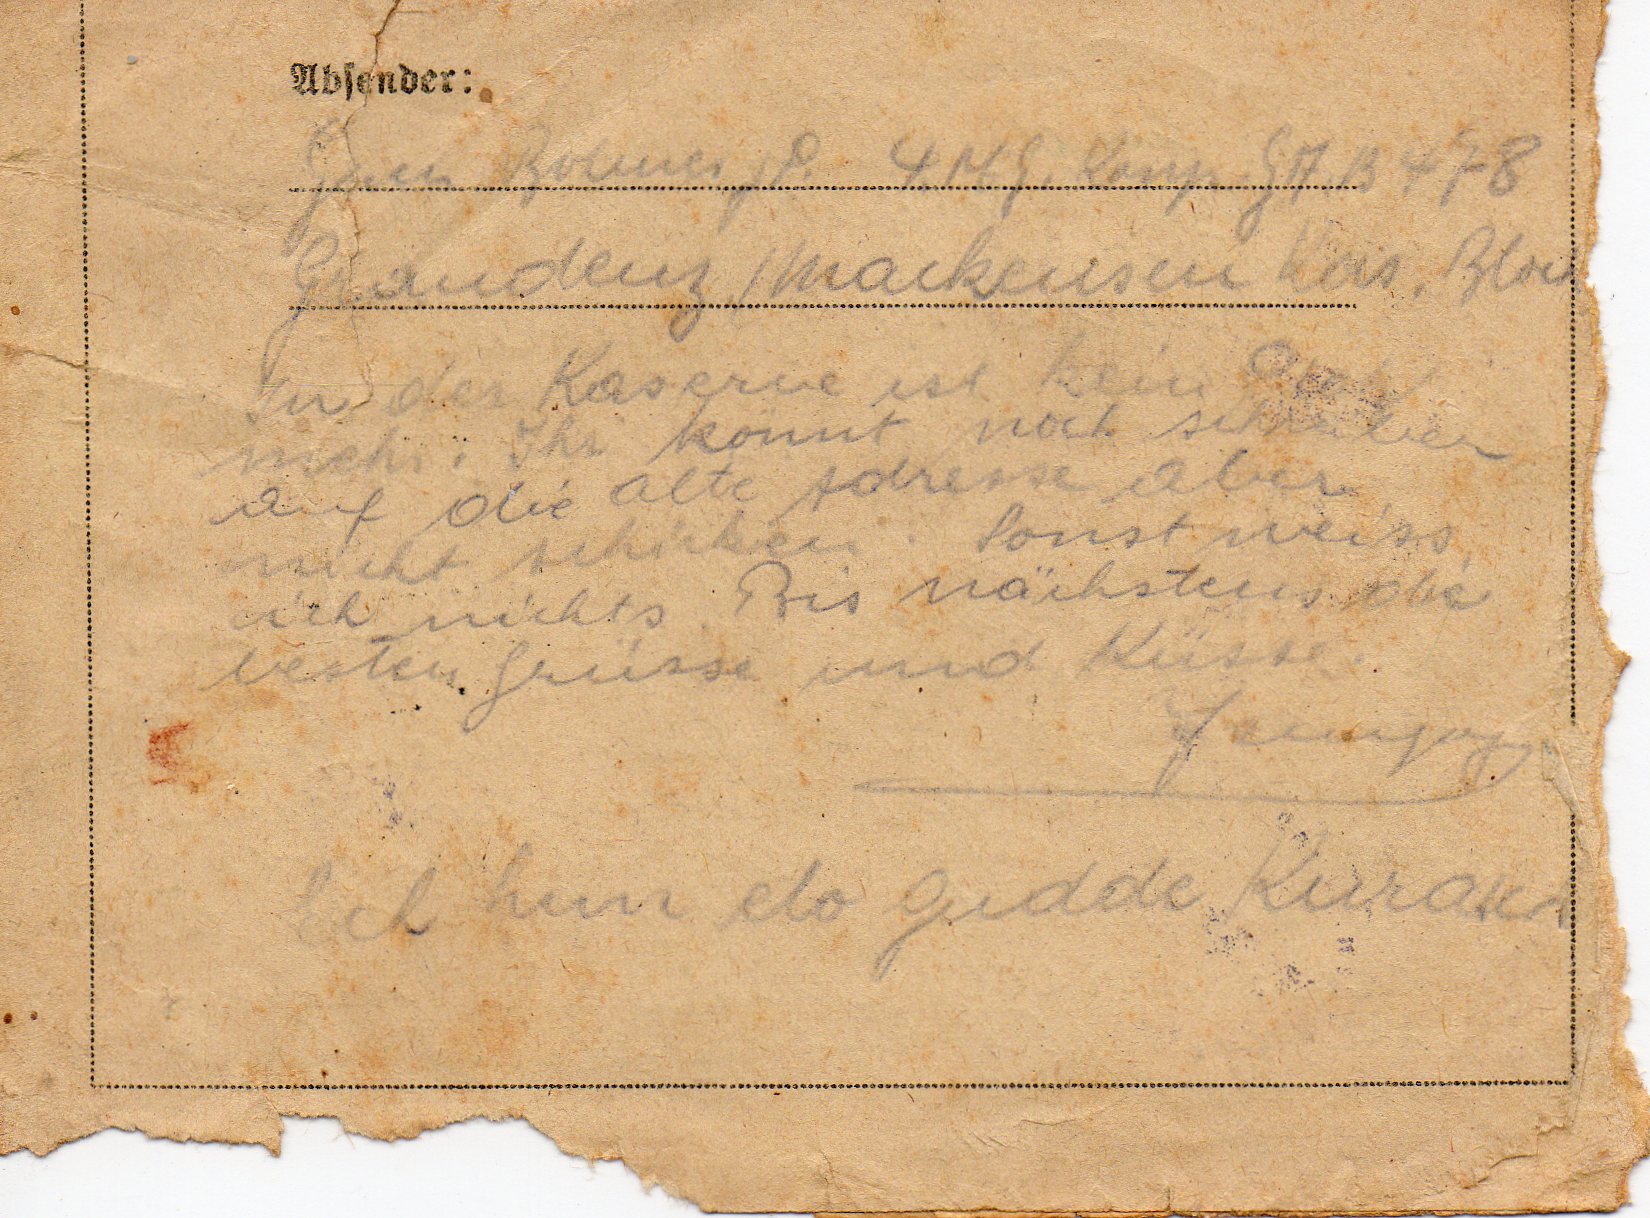 Absender:
Gren Bohnes P. 4. M.G. Komp. G.A.B 478
Graudenz Mackensen Kas. Blou
In der Kaserne ist kein Platz
mehr. Ihr könnt noch schreiben
auf die alte Adresse aber
nicht schicken. Sonst weiss
ich nichts. Bis nächstens die
besten Grüsse und Küsse.
Ech hun elo gudde Kurasch